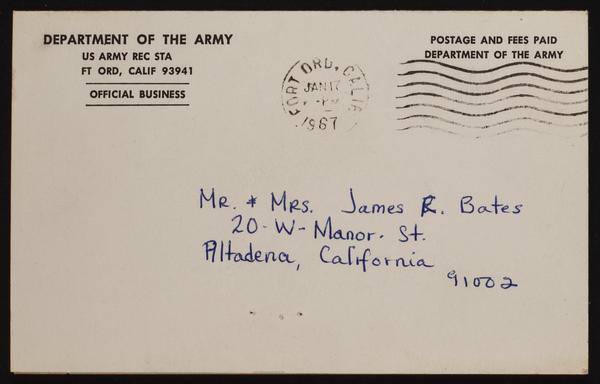 DEPARTMENT OF THE ARMY
US ARMY REC STA
FT ORD, CALIF 93941
OFFICIAL BUSINESS
FORT ORD, CALIF
JAN 17
PM
1967
POSTAGE AND FEES PAID
DEPARTMENT OF THE ARMY
Mr. & Mrs. James R. Bates
20-W-Manor. St.
Altadena, California
91002